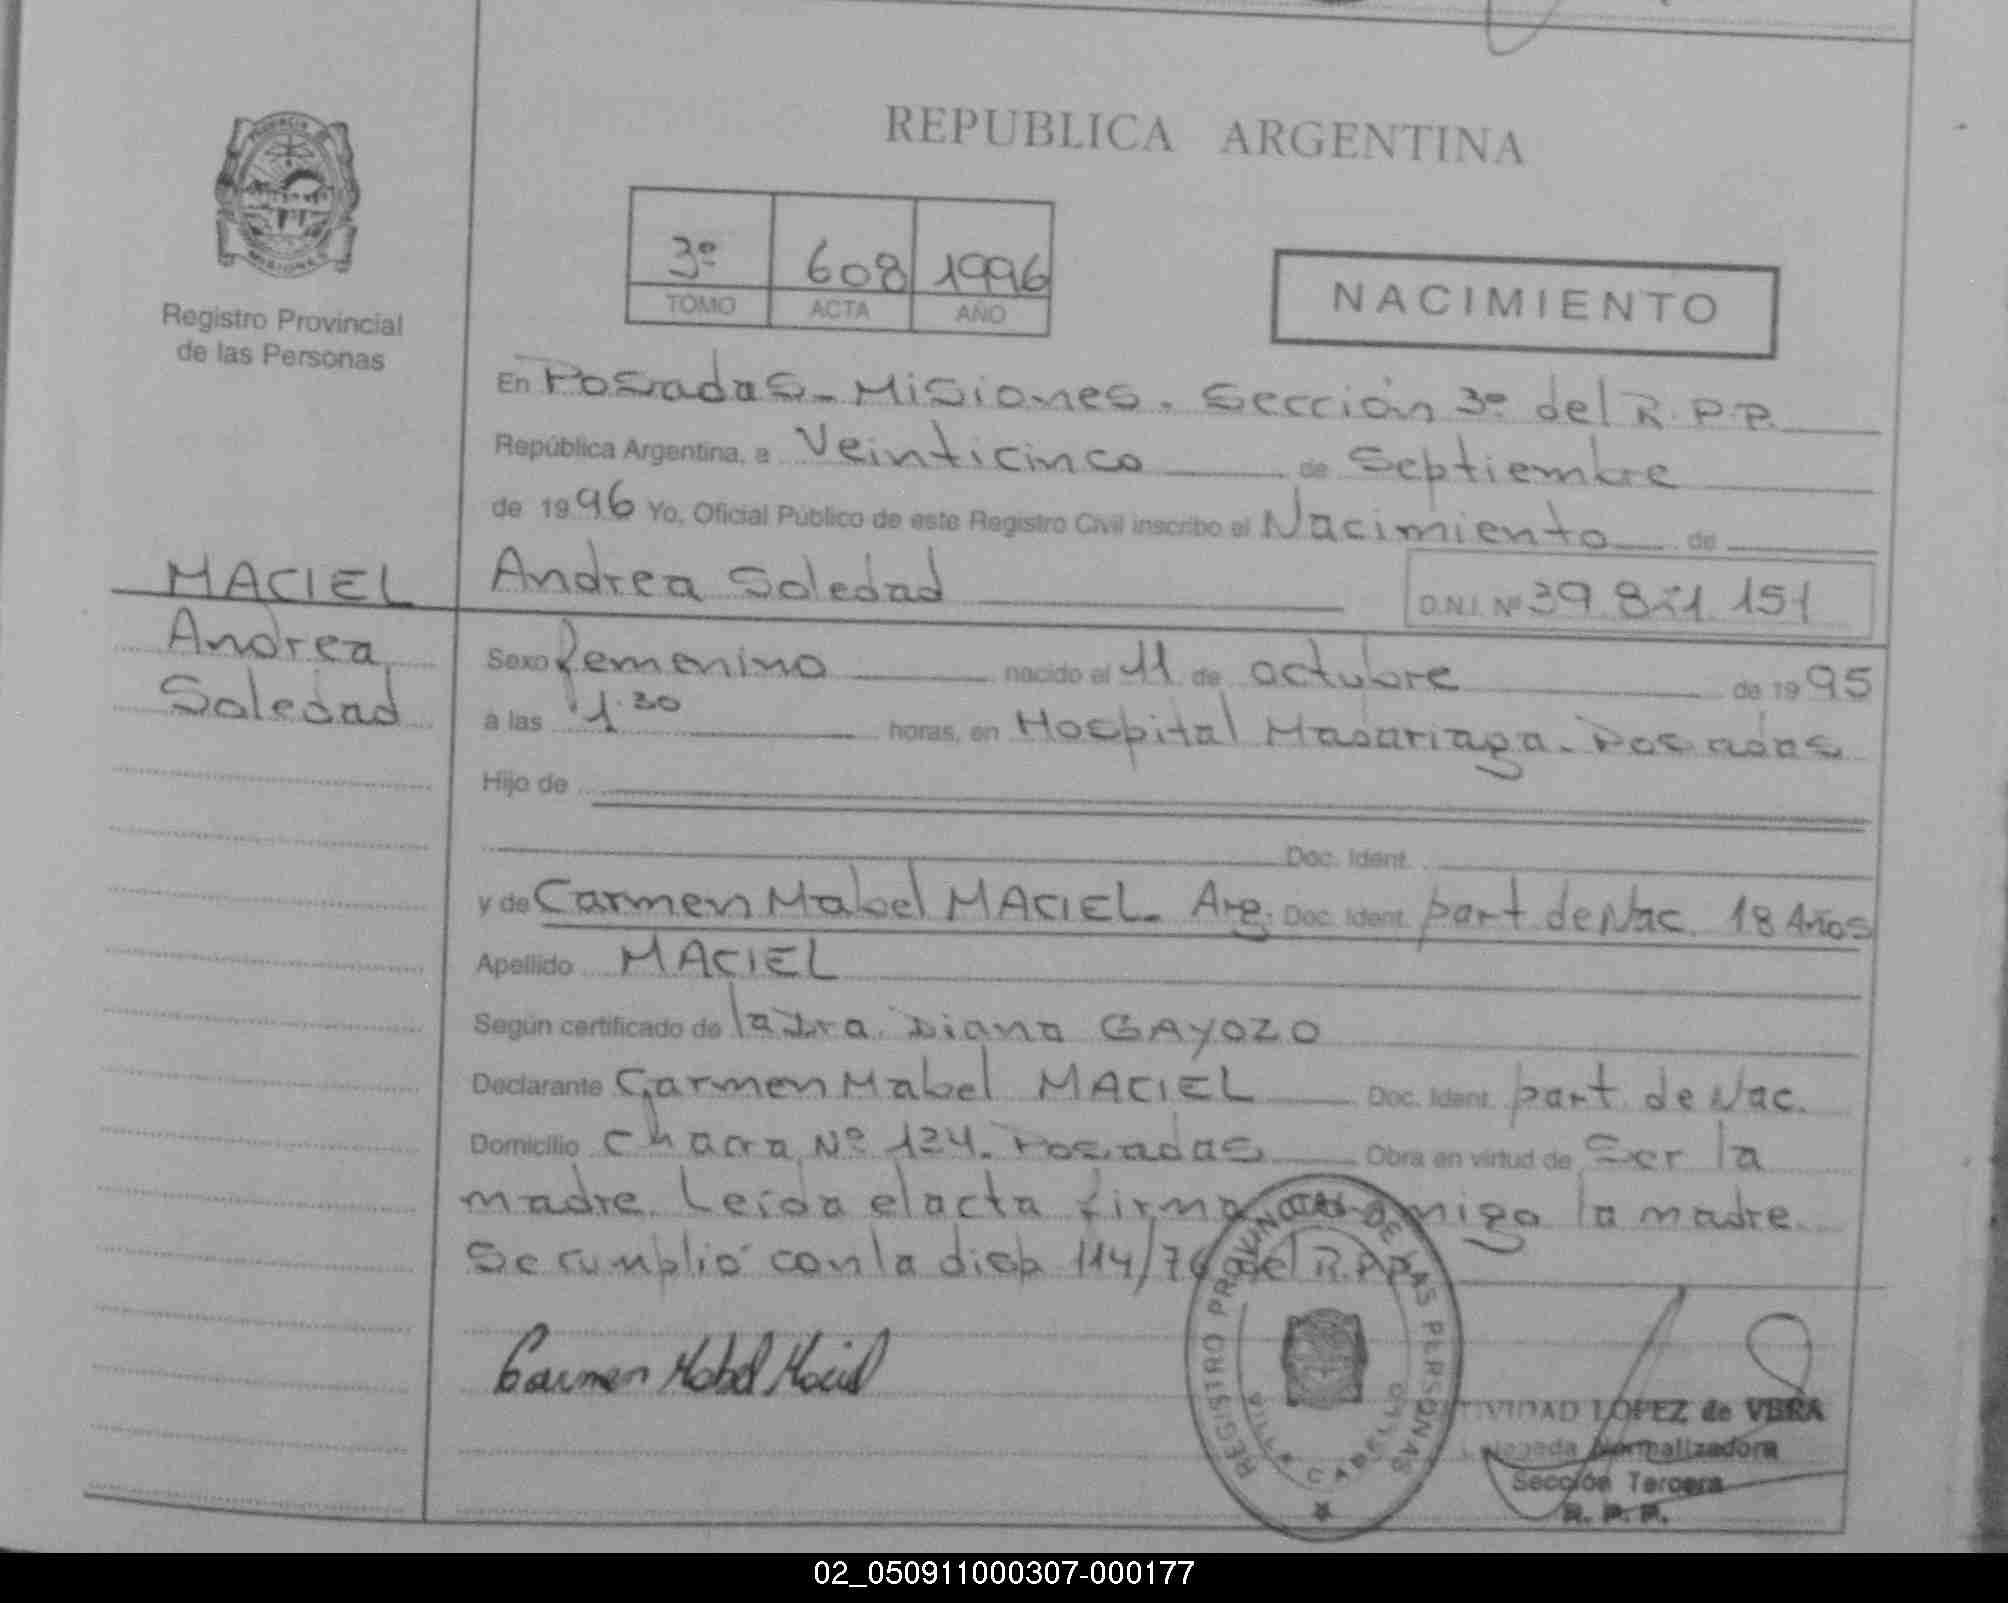 REPUBLICA ARGENTINA
PROVINCIA DE
MISIONES
Registro Provincial
de las Personas
3º 608 1996
TOMO ACTA AÑO
NACIMIENTO
En Posadas - Misiones. Sección 3º del R.P.P.
República Argentina, a Veinticinco de Septiembre
de 1996 Yo, Oficial Público de este Registro Civil inscribo el Nacimiento de
MACIEL
Andrea
Soledad
Andrea Soledad D.N.I. Nº 39.871.151
Sexo femenino nacido el 11 de octubre de 1995
a las 1.30 horas, en Hospital Madariaga - Posadas
Hijo de
Doc. Ident.
y de Carmen Mabel MACIEL. Arg. Doc. Ident. part de Nac. 18 Años
Apellido MACIEL
Según certificado de la Dra. Diana GAYOZO
Declarante Carmen Mabel MACIEL Doc. Ident. part. de Nac.
Domicilio Chacra Nº 124. Posadas Obra en virtud de Ser la
madre. Leída el acta firma conmigo la madre.
Se cumplió con la disp 114/76 del R.P.P.
Carmen Mabel Maciel
REGISTRO PROVINCIAL DE LAS PERSONAS
VILLA CABELLO
TIVIDAD LOPEZ de VERA
Delegada Normalizadora
Sección Tercera
R. P. P.
02_050911000307-000177